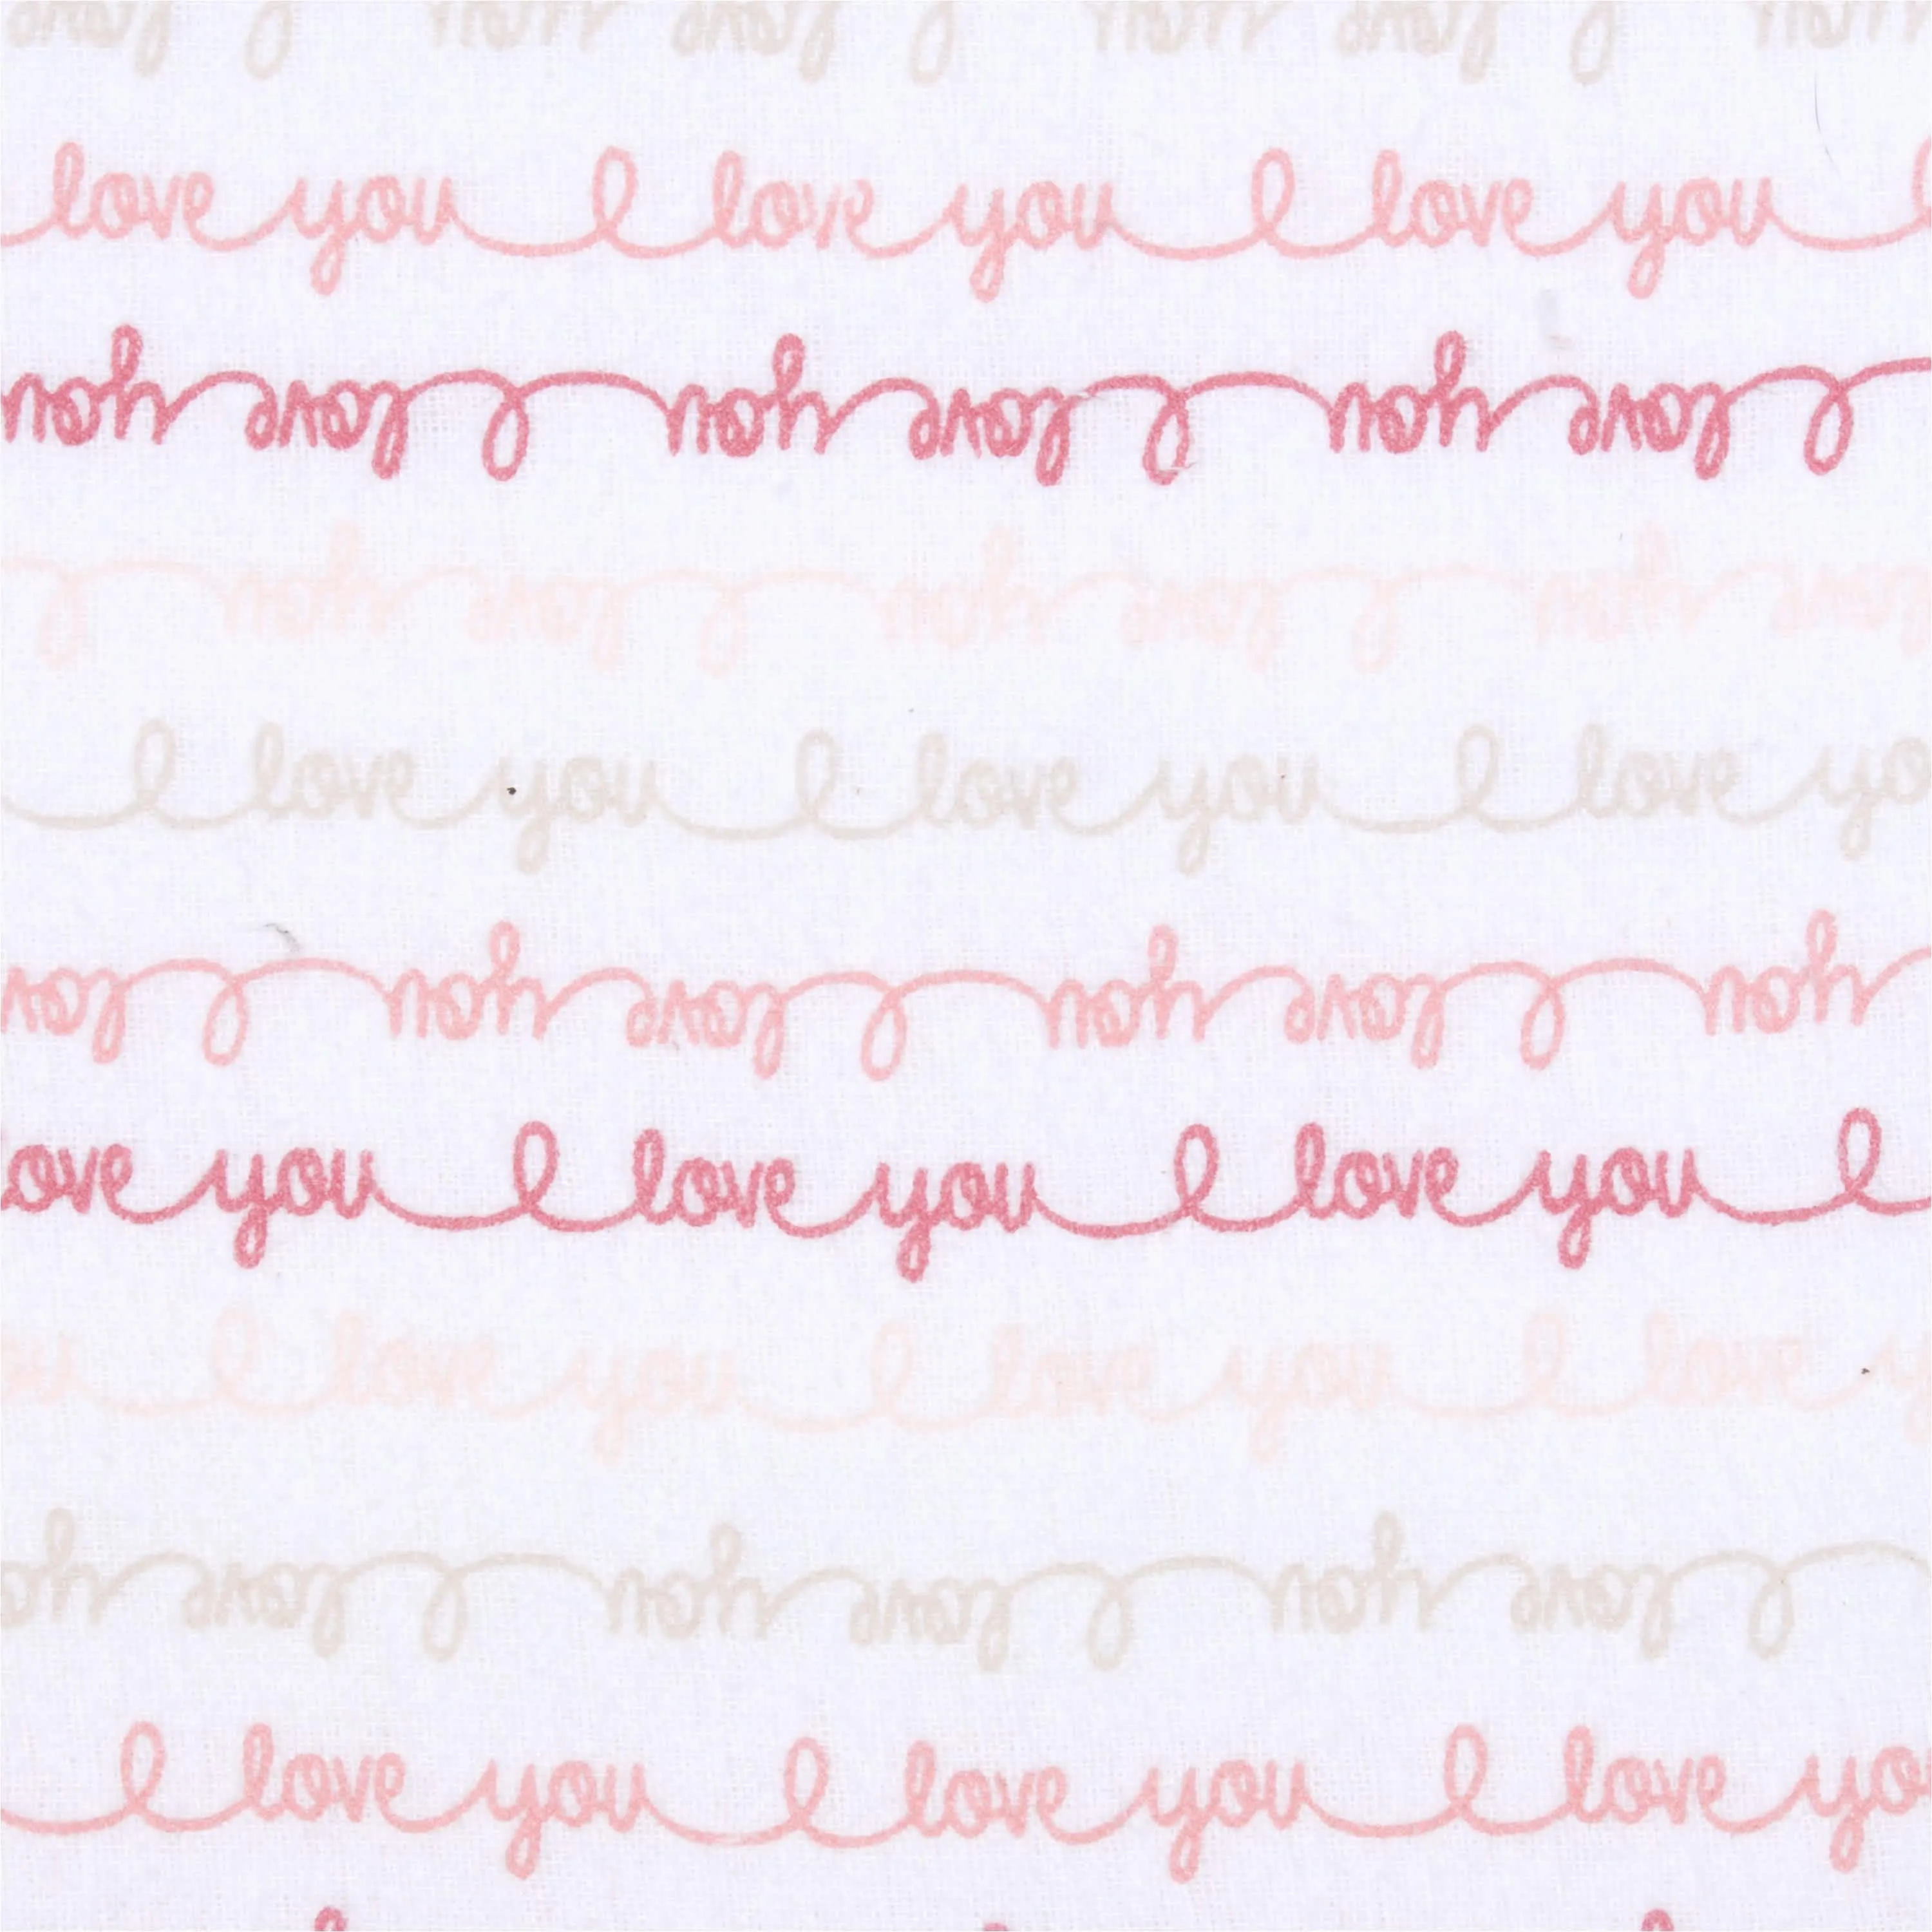 love you I love you I love you I
you love I you love I you love I
I you love I you love I you love
I love you I love you I love yo
love I you love I you love I you
ove you I love you I love you I
ou I love you I love you I love y
you love I you love I you love I
I love you I love you I love yo